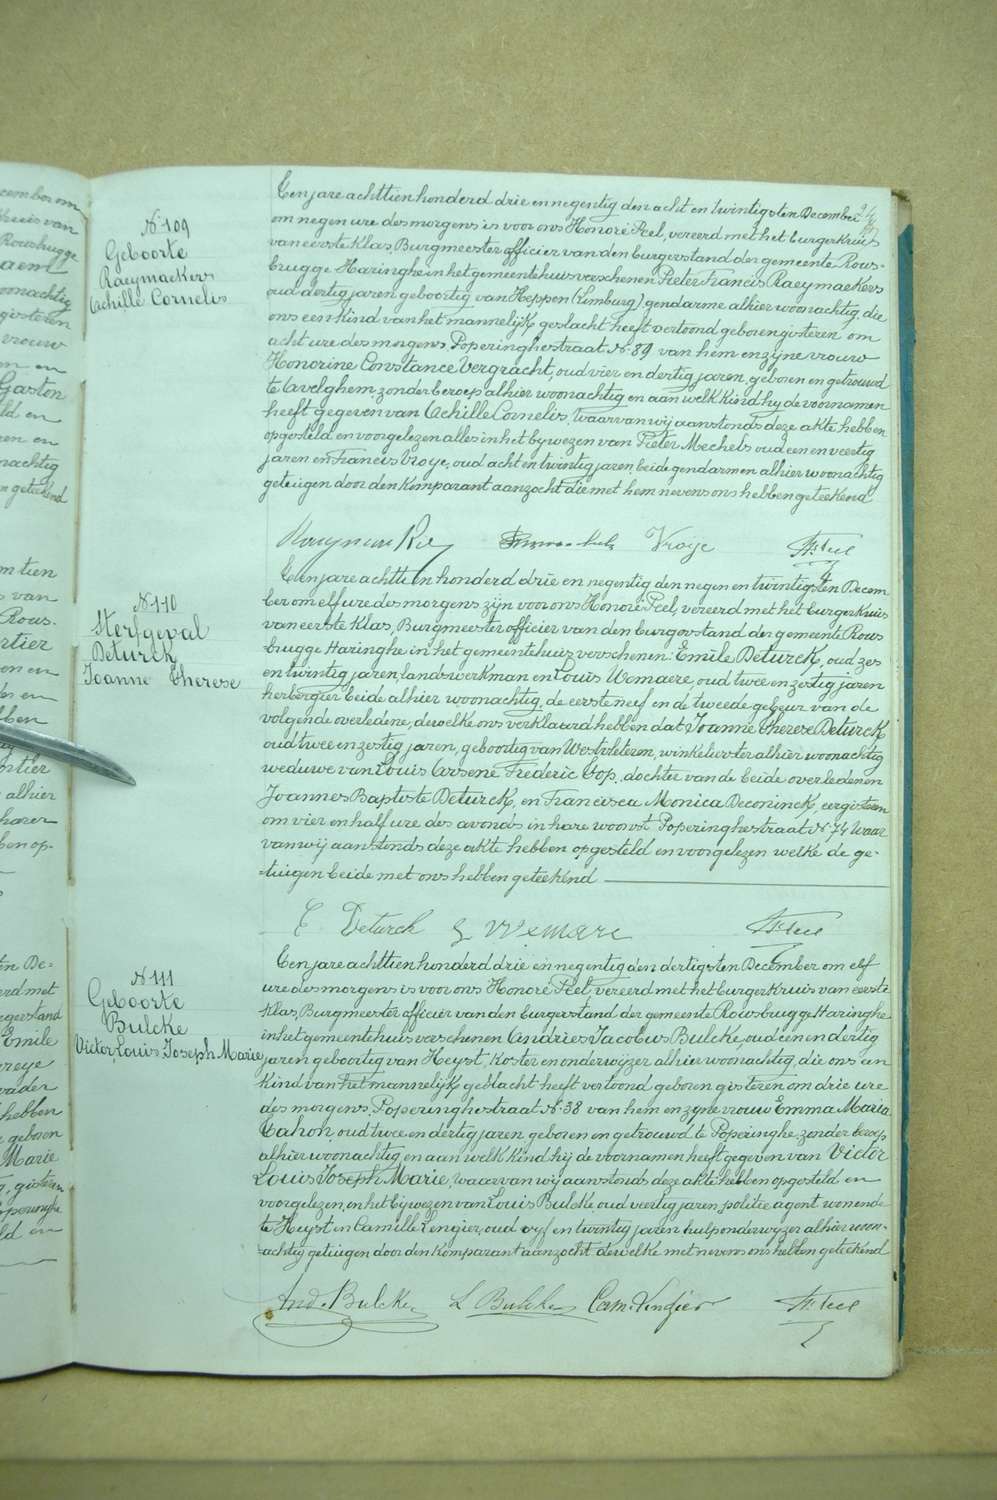 N. 109
Geboorte
Raeymaekers
Achille Cornelis
Een jare achttien honderd drie en negentig den acht en twintigsten December
om negen ure des morgens is voor ons Honoré Peel, vereerd met het burgerkruis
van eerste klas, Burgmeester officier van den burgerstand der gemeente Rous-
brugge Haringhe in het gemeentehuis verschenen Pieter Francis Raeymaekers
oud dertig jaren geboortig van Heppen (Limburg) gendarme alhier woonachtig, die
ons een kind van het mannelijk geslacht heeft vertoond geboren gisteren om
acht ure des morgens Poperinghestraat N. 89 van hem en zyne vrouw
Honorine Constance Vergracht, oud vier en dertig jaren, geboren en getrouwd
te Avelghem, zonder beroep alhier woonachtig en aan welk kind hy de voornamen
heeft gegeven van Achille Cornelis, waarvan wij aanstonds deze akte hebben
opgesteld en voorgelezen alles in het bywezen van Pieter Mechels oud een en veertig
jaren en Francis Vroye, oud acht en twintig jaren, beide gendarmen alhier woonachtig
getuigen door den komparant aanzocht die met hem nevens ons hebben geteekend
Vroye H. Peel
N. 110
Sterfgeval
Deturck
Joanne Therese
Een jare achttien honderd drie en negentig den negen en twintigsten Decem
ber om elf ure des morgens zijn voor ons Honoré Peel, vereerd met het burgerkruis
van eerste klas, Burgmeester officier van den burgerstand der gemeente Rous
brugge Haringhe in het gemeentehuis verschenen: Emile Deturck, oud zes
en twintig jaren, landswerkman en Louis Wemaere oud twee en zestig jaren
herbergier beide alhier woonachtig, de eerste neef en de tweede gebeur van de
volgende overledene, dewelke ons verklaard hebben dat Joanne Therese Deturck
oud twee en zestig jaren, geboortig van Westvleteren, winkelierster alhier woonachtig
weduwe van Louis Arsene Frederic Cop, dochter van de beide overledenen
Joannes Baptiste Deturck, en Francisca Monica Deconinck, eergisteren
om vier en half ure des avonds in hare woonst Poperinghestraat N. 74 waar
van wij aanstonds deze akte hebben opgesteld en voorgelezen welke de ge-
tuigen beide met ons hebben geteekend
E Deturck L Wemare H. Peel
N. 111
Geboorte
Bulcke
Victor Louis Joseph Marie
Een jare achttien honderd drie en negentig den dertigsten December om elf
ure des morgens is voor ons Honoré Peel, vereerd met het burgerkruis van eerste
klas, Burgmeester officier van den burgerstand der gemeente Rousbrugge Haringhe
in het gemeentehuis verschenen Andries Jacobus Bulcke, oud een en dertig
jaren geboortig van Heyst, koster en onderwijzer alhier woonachtig, die ons een
kind van het mannelijk geslacht heeft vertoond geboren gisteren om drie ure
des morgens, Poperinghestraat N. 38 van hem en zyne vrouw Emma Maria
Cahon, oud twee en dertig jaren geboren en getrouwd te Poperinghe, zonder beroep
alhier woonachtig en aan welk kind hij de voornamen heeft gegeven van Victor
Louis Joseph Marie, waarvan wij aanstonds deze akte hebben opgesteld en
voorgelezen, en het bijwezen van Louis Bulcke oud veertig jaren, politie agent wonende
te Heyst en Camille Lengier, oud vyf en twintig jaren hulponderwijzer alhier woon-
achtig getuigen door den komparant aanzocht dewelke met nevens ons hebben geteekend
And. Bulcke L Bulcke Cam. Lengier H. Peel